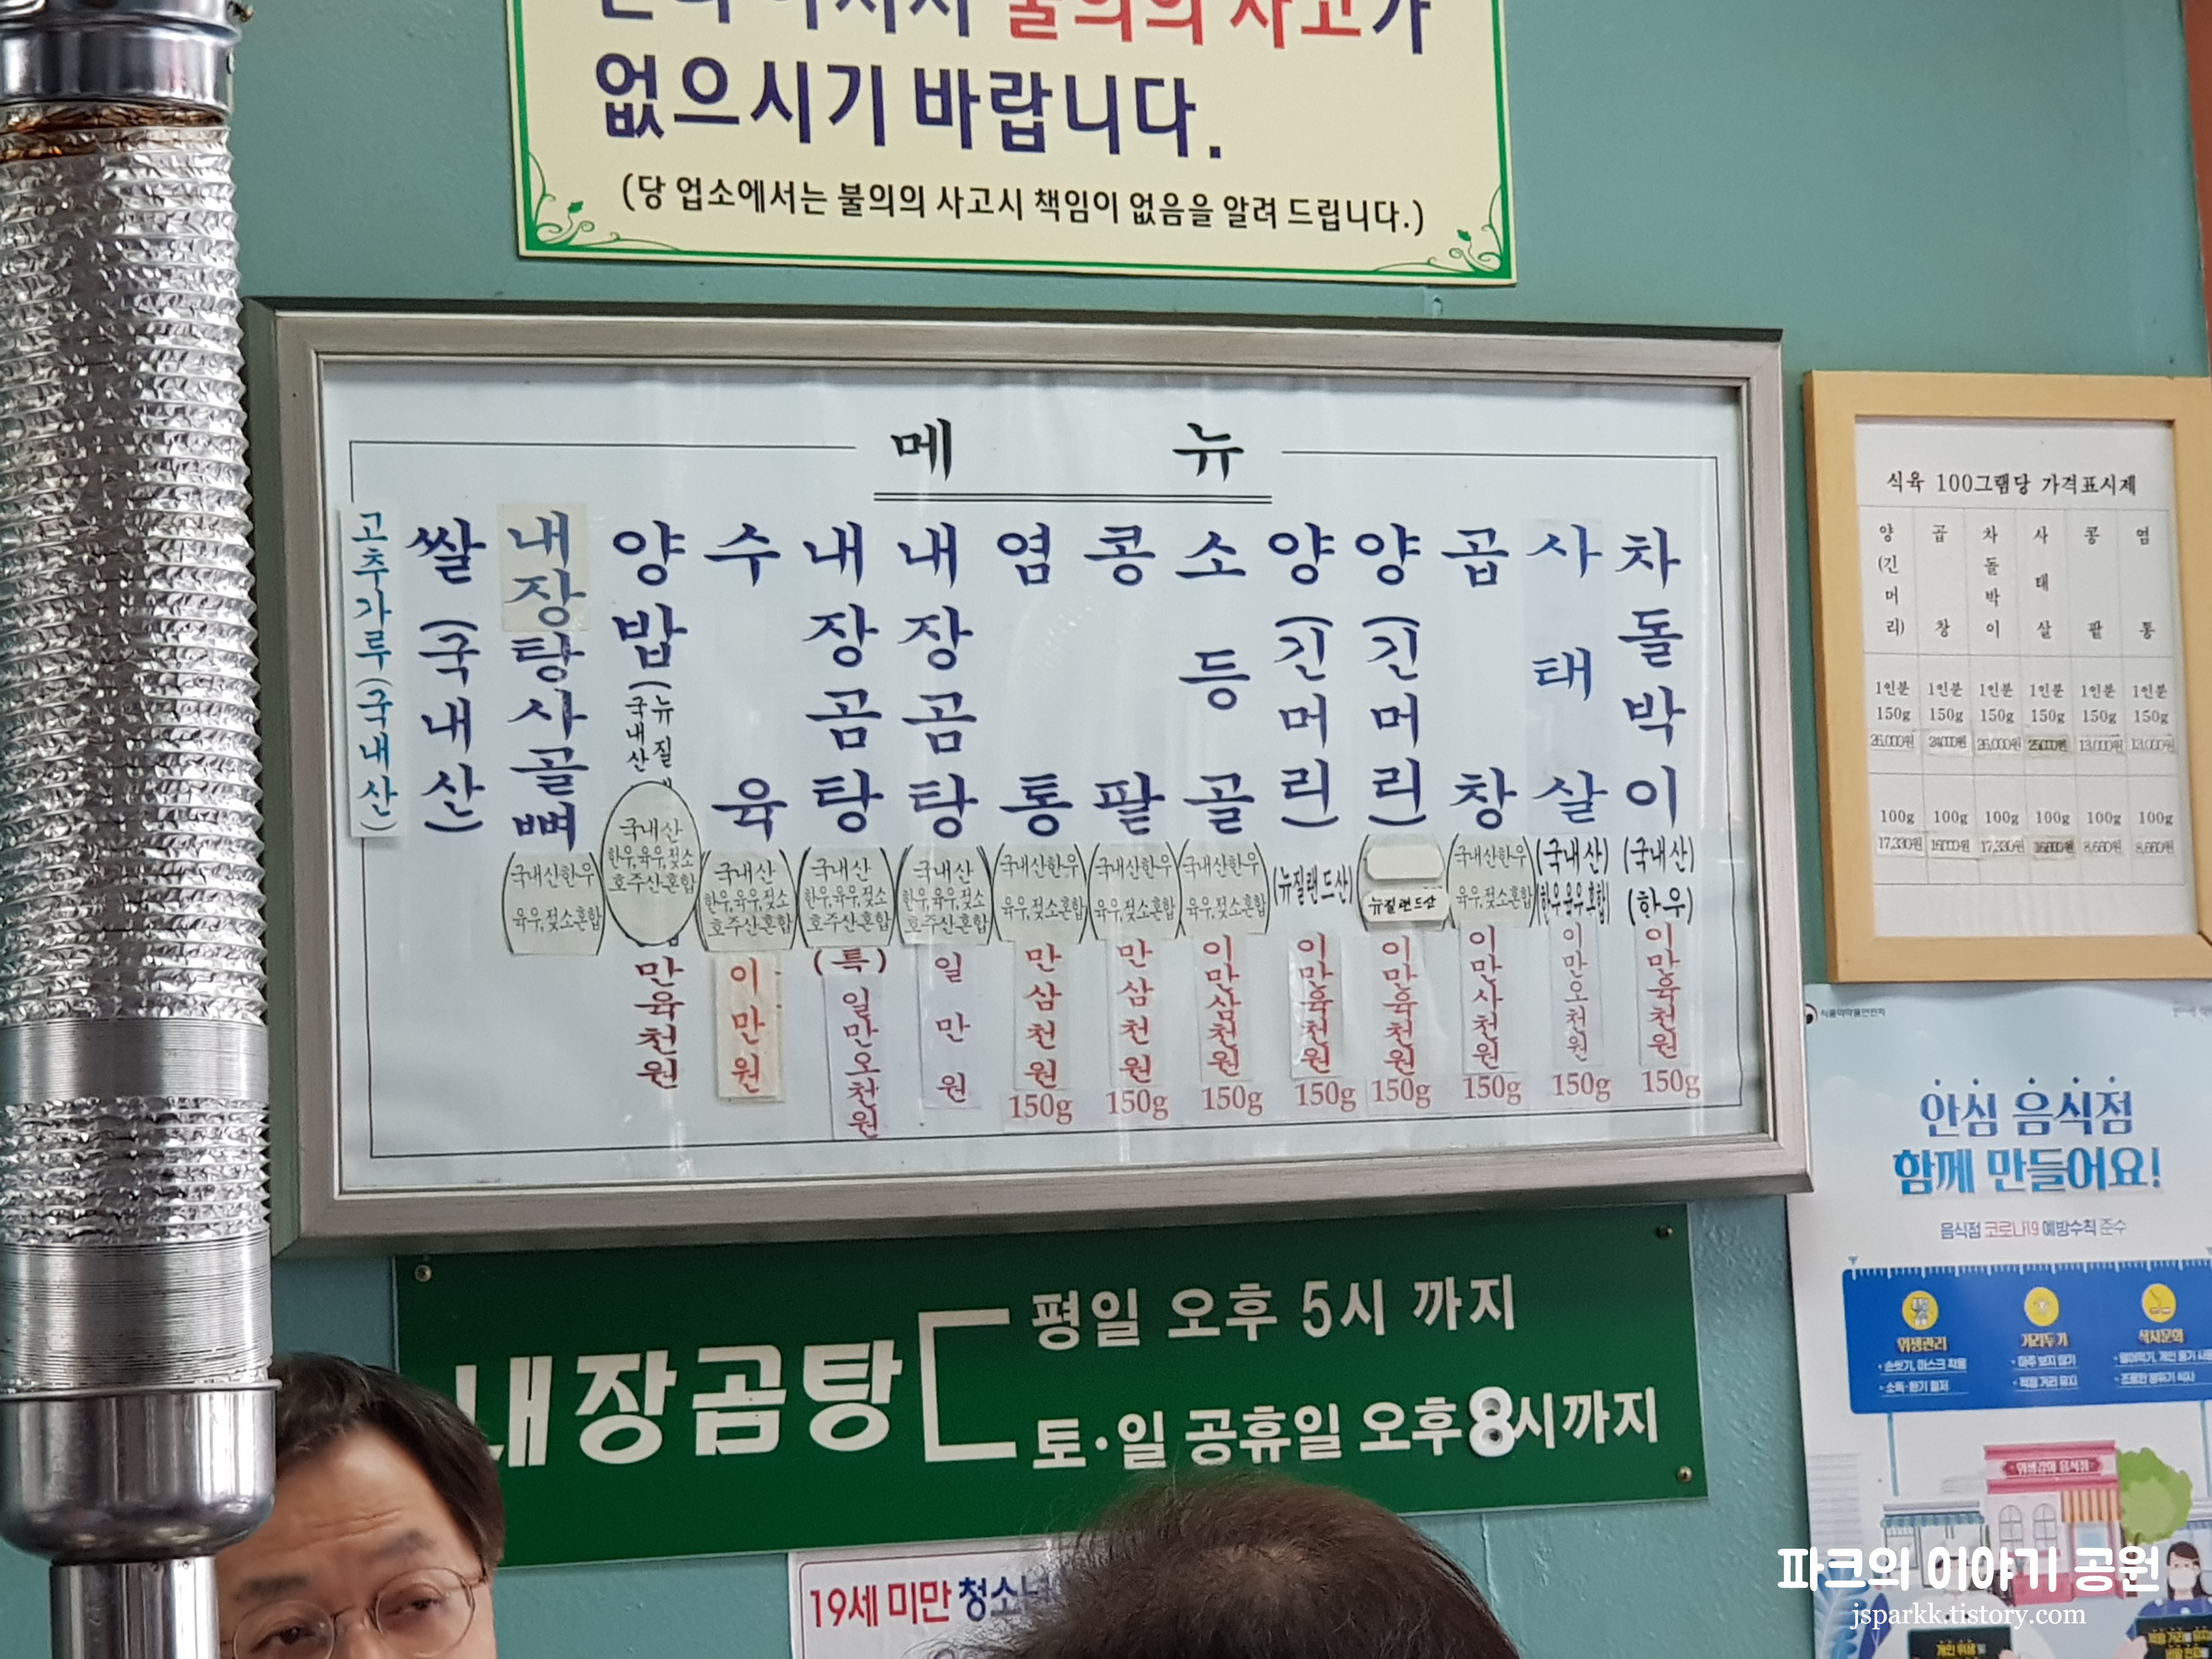 불의의 사고가
없으시기 바랍니다.
(당 업소에서는 불의의 사고시 책임이 없음을 알려 드립니다.)
메 뉴
차돌박이 (국내산) (한우) 이만육천원 150g
사태살 (국내산) (한우육우혼합) 이만오천원 150g
곱창 국내산한우 육우,젖소혼합 이만사천원 150g
양(긴머리) 뉴질랜드산 이만육천원 150g
양(긴머리) (뉴질랜드산) 이만육천원 150g
소등골 국내산한우 육우,젖소혼합 이만삼천원 150g
콩팥 국내산한우 육우,젖소혼합 만삼천원 150g
염통 국내산한우 육우,젖소혼합 만삼천원 150g
내장곰탕 국내산 한우,육우,젖소 호주산혼합 일만원
내장곰탕 국내산 한우,육우,젖소 호주산혼합 (특) 일만오천원
수육 국내산 한우,육우,젖소 호주산혼합 이만원
양밥(뉴질 국내산 국내산 한우,육우,젖소 호주산혼합 만육천원
내장탕사골뼈 국내산한우 육우,젖소혼합
쌀(국내산)
고추가루(국내산)
식육 100그램당 가격표시제
양(긴머리) 곱창 차돌박이 사태살 콩팥 염통
1인분 1인분 1인분 1인분 1인분 1인분
150g 150g 150g 150g 150g 150g
26,000원 24,000원 26,000원 25,000원 13,000원 13,000원
100g 100g 100g 100g 100g 100g
17,330원 16,000원 17,330원 8,660원 8,660원
안심 음식점
함께 만들어요!
음식점 코로나19 예방수칙 준수
위생관리 거리두기 식사문화
내장곰탕
평일 오후 5시 까지
토·일 공휴일 오후8시까지
19세 미만
파크의 이야기 공원
jsparkk.tistory.com